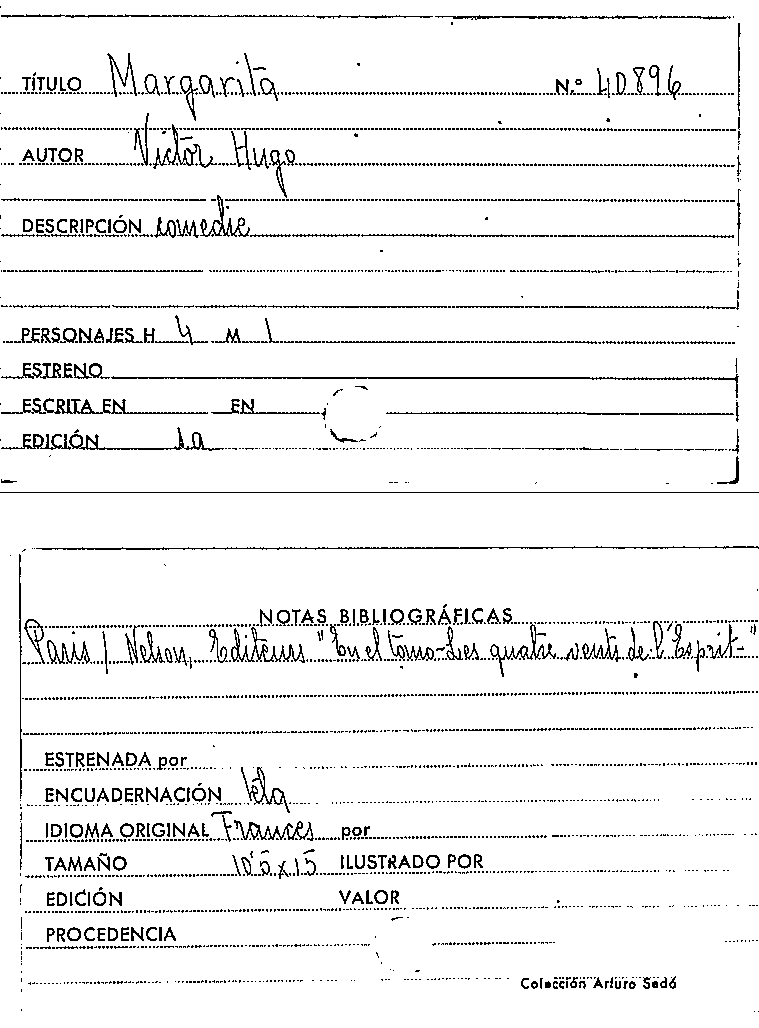 TÍTULO Margarita N.º 40896
AUTOR Victor Hugo
DESCRIPCIÓN comedie
PERSONAJES H 4 M 1
ESTRENO
ESCRITA EN EN
EDICIÓN 1a
NOTAS BIBLIOGRÁFICAS
Paris / Nelson, Editeurs "En el tomo-Les quatre vents de l'Esprit-"
ESTRENADA por
ENCUADERNACIÓN tela
IDIOMA ORIGINAL Frances por
TAMAÑO 10'5 x 15 ILUSTRADO POR
EDICIÓN VALOR
PROCEDENCIA
Colección Arturo Sedó